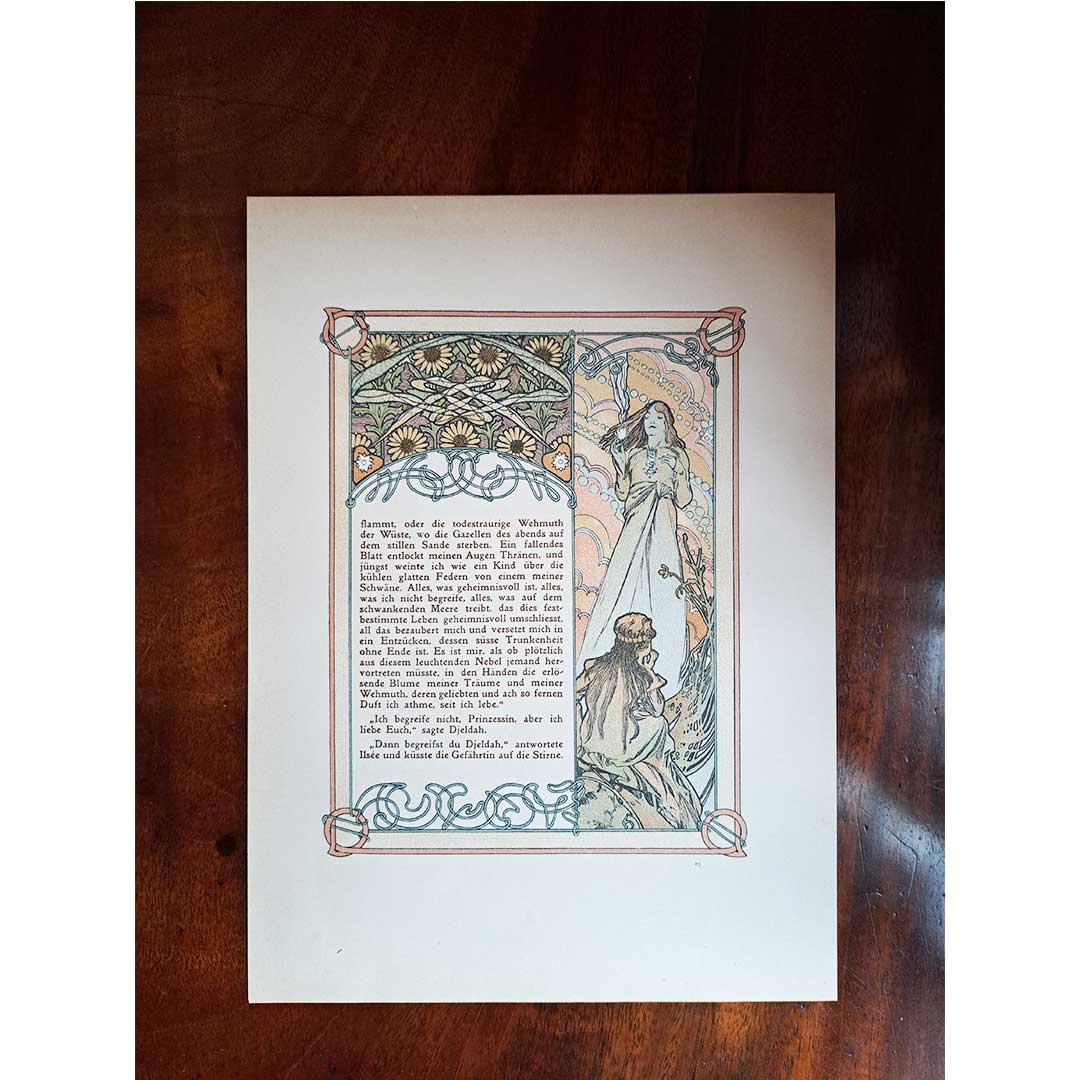 flammt, oder die todestraurige Wehmuth
der Wüste, wo die Gazellen des abends auf
dem stillen Sande sterben. Ein fallendes
Blatt entlockt meinen Augen Thränen, und
jüngst weinte ich wie ein Kind über die
kühlen glatten Federn von einem meiner
Schwäne. Alles, was geheimnisvoll ist, alles,
was ich nicht begreife, alles, was auf dem
schwankenden Meere treibt, das dies fest-
bestimmte Leben geheimnisvoll umschliesst,
all das bezaubert mich und versetzt mich in
ein Entzücken, dessen süsse Trunkenheit
ohne Ende ist. Es ist mir, als ob plötzlich
aus diesem leuchtenden Nebel jemand her-
vortreten müsste, in den Händen die erlö-
sende Blume meiner Träume und meiner
Wehmuth, deren geliebten und ach so fernen
Duft ich athme, seit ich lebe.“
„Ich begreife nicht, Prinzessin, aber ich
liebe Euch,“ sagte Djeldah.
„Dann begreifst du Djeldah,“ antwortete
Ilsée und küsste die Gefährtin auf die Stirne.